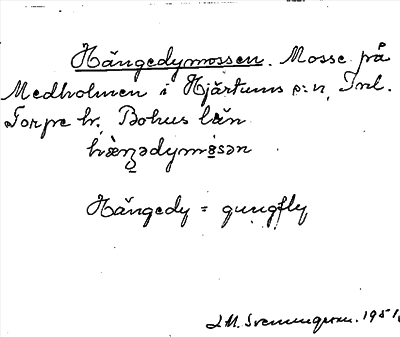 Hängedymossen. Mosse på
Medholmen i Hjärtums s:n, Inl.
Torpe hr, Bohus län
Hängedy = gungfly
J.M. Svenningsson. 1951.